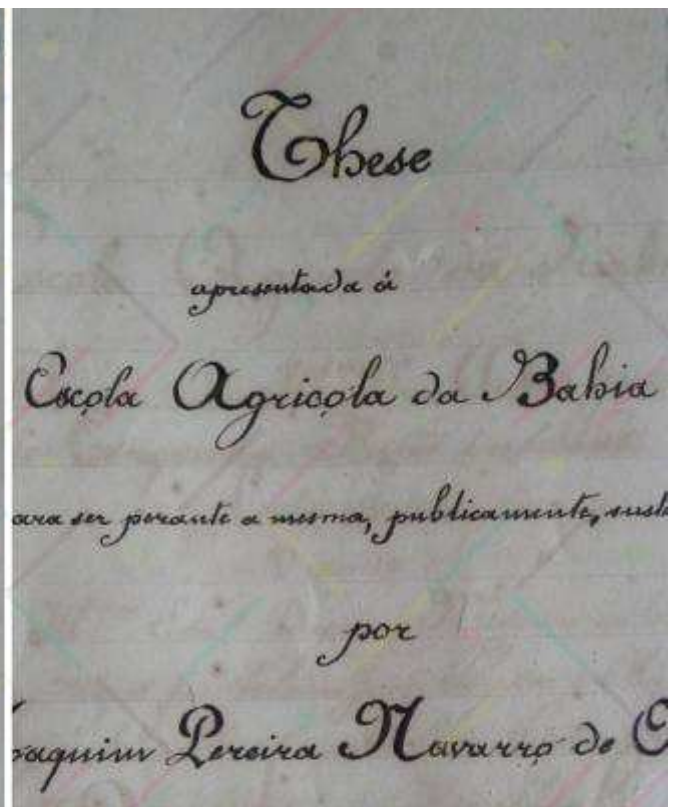 These
apresentada á
Escola Agricola da Bahia
ara ser perante a mesma, publicamente, sust
por
oaquim Pereira Navarro de